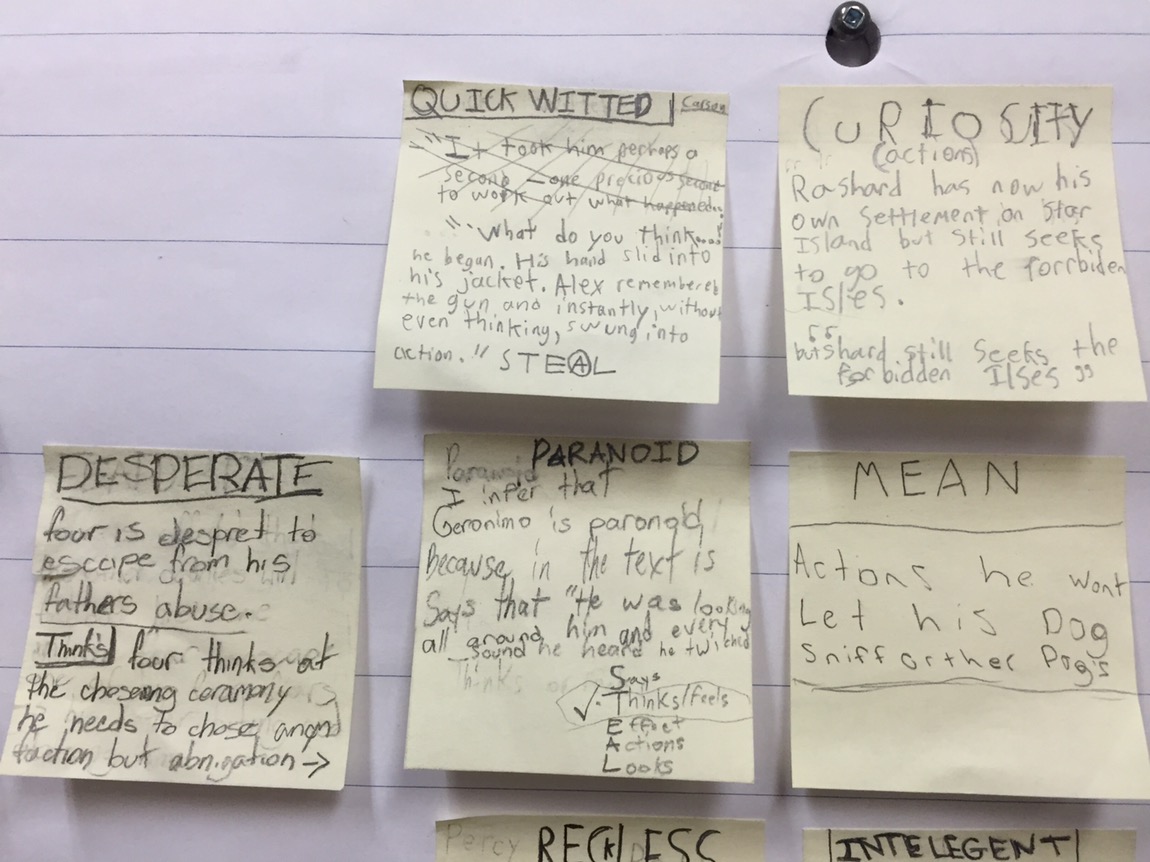 QUICK WITTED
Carson
"It took him perhaps a
second – one precious second
to work out what happened.
"What do you think...."
he began. His hand slid into
his jacket. Alex remembered
the gun and instantly, without
even thinking, swung into
action." STEAL
CURIOSITY
(actions)
Rashard has now his
own settlement on Star
Island but still seeks
to go to the forrbiden
Isles.
"
but shard still seeks the
forbidden Ilses "
DESPERATE
four is despret to
escape from his
fathers abuse.
Think's four thinks at
the choseing ceramony
he needs to chose
faction but abnigation →
Paranoid PARANOID
I infer that
Geronimo is paronoid,
because in the text is
Says that "He was looking
all around him and every
sound he heard he twiched
Thinks
Says
✓· Thinks/feels
Effect
Actions
Looks
MEAN
Actons he wont
Let his Dog
Sniff orther Dog's
Percy RECKLESS
INTELEGENT